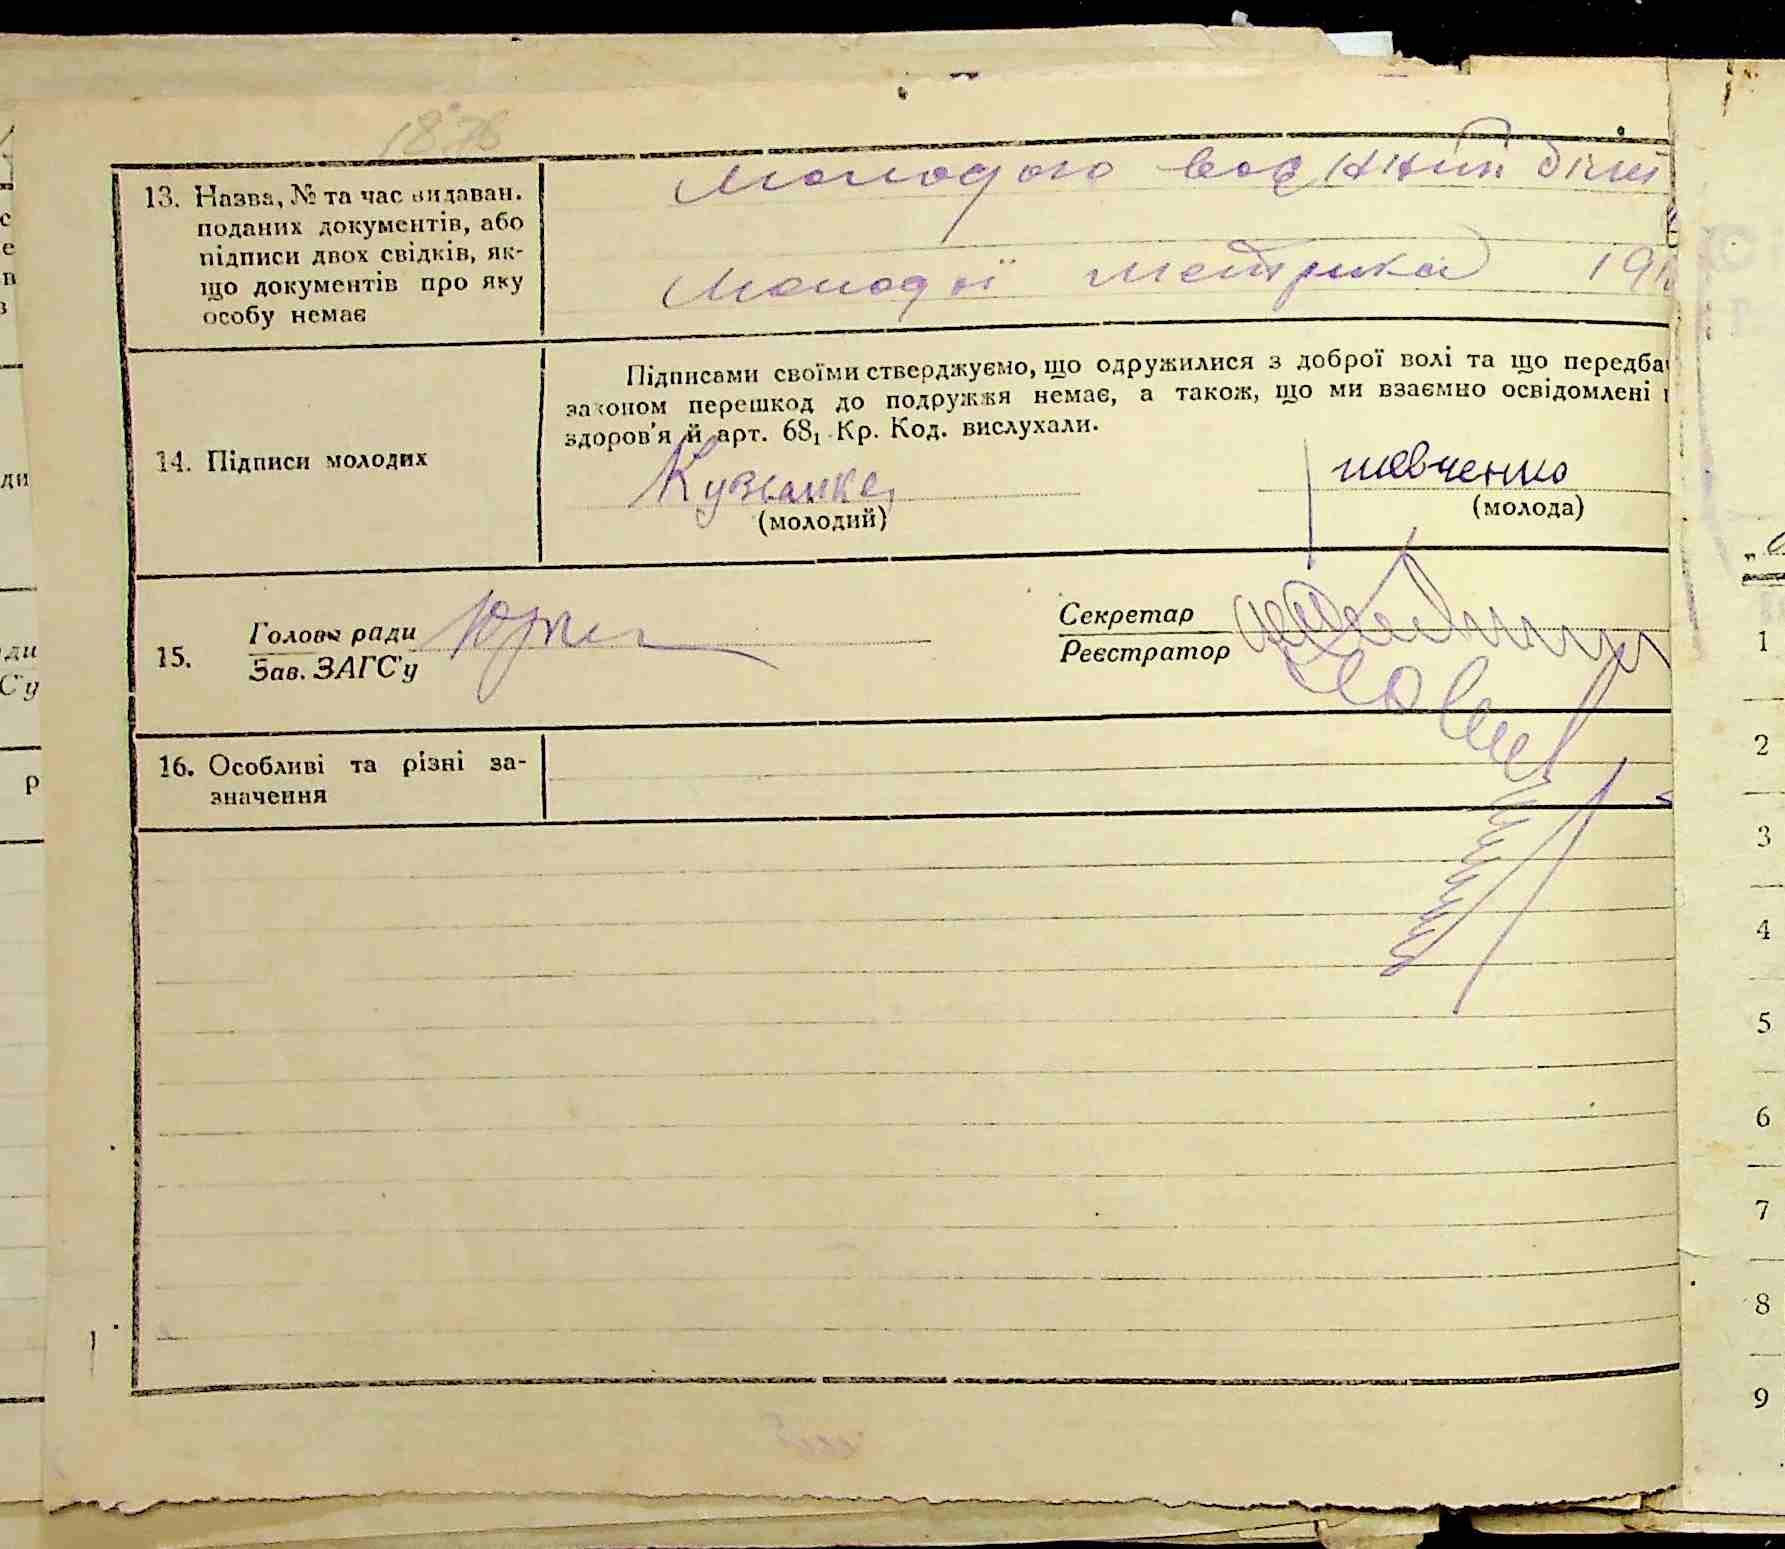 1876
13. Назва, № та час видаван.
поданих документів, або
підписи двох свідків, як-
що документів про яку
особу немає
Молодого воєнний біле
Молодої метрика 191
Підписами своїми стверджуємо, що одружилися з доброї волі та що передба
законом перешкод до подружжя немає, а також, що ми взаємно освідомлені
здоров'я й арт. 68₁ Кр. Код. вислухали.
14. Підписи молодих
Кузьменко
шевченко
(молодий)
(молода)
15.
Голова ради
Зав. ЗАГС'у
Секретар
Реєстратор
16. Особливі та різні за-
значення
ди
ди
С'у
р
1
2
3
4
5
6
7
8
9